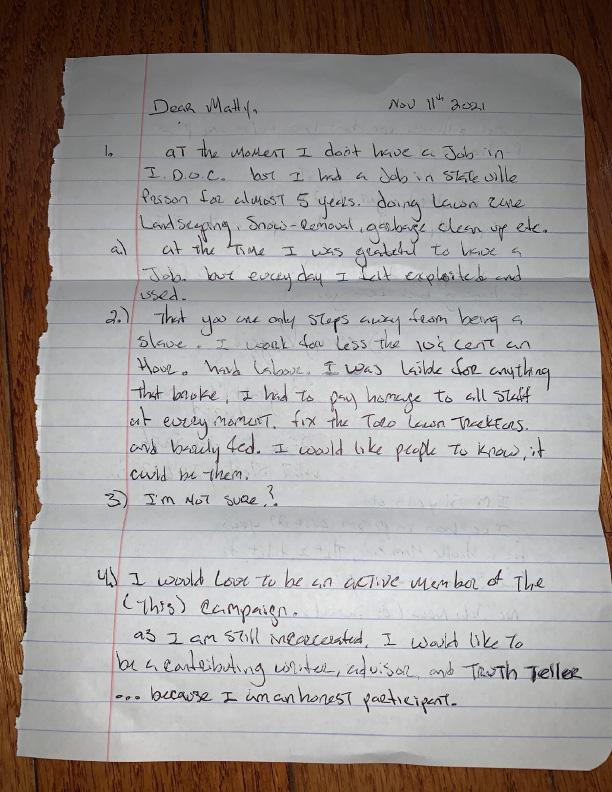 Dear Matty, Nov 11th 2021
1. at the moment I don't have a Job in
I.D.O.C. but I had a Job in Stateville
Prison for almost 5 years. doing Lawn care
Landscaping, Snow-Removal, garbage, clean up etc.
a.) at the Time I was grateful to have a
Job. but everyday I felt exploited and
used.
2.) That you are only steps away from being a
slave. I work for Less the 10¢ cent an
Hour. hard Labour. I was laible for anything
that broke, I had to pay homage to all staff
at every moment. fix the Toro Lawn Tracktors.
and barely fed. I would like people to know, it
could be them.
3) I'm not sure.?
4.) I would Love to be an active member of The
(This) Campaign.
as I am still incarcerated, I would like to
be a contributing writer, advisor, and Truth Teller
... because I am an honest participant.